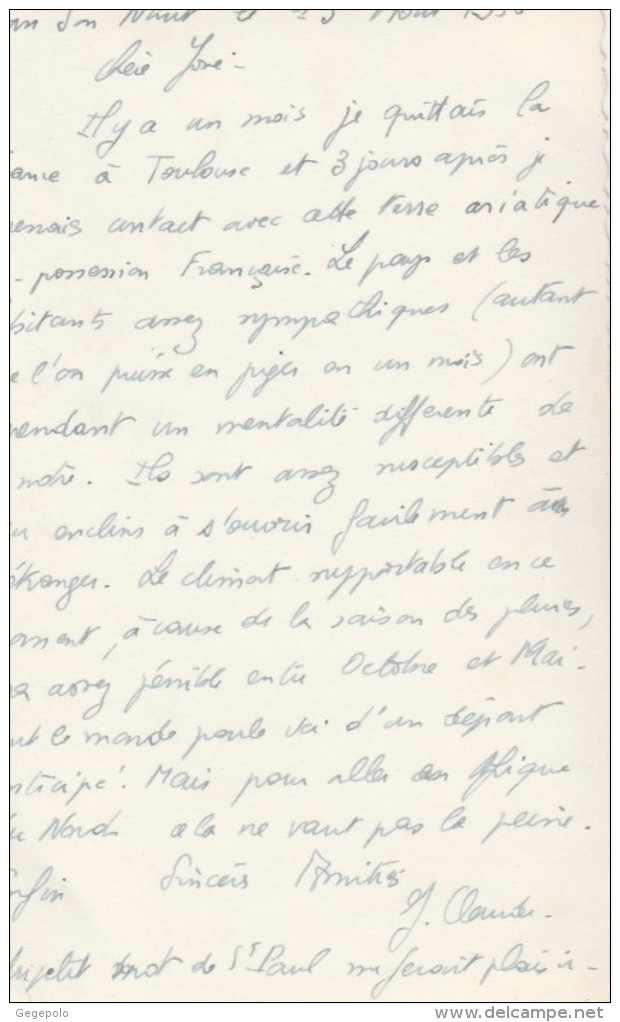 Son Nhut le 23 Août 195
Chère José -
Il y a un mois je quittais la
rance à Toulouse et 3 jours après je
renais contact avec cette terre asiatique
- possession Française. Le pays et les
bitants assez sympathiques (autant
e l'on puisse en juger en un mois) ont
pendant un mentalité différente de
notre. Ils sont assez susceptibles et
eu enclins à s'ouvrir facilement à
étranger. Le climat supportable en ce
oment, à cause de la saison des pluies,
ra assez pénible entre Octobre et Mai.
out le monde parle ici d'un départ
nticipé. Mais pour aller en Afrique
du Nord cela ne vaut pas la peine.
Enfin Sincères Amitiés
J. Claude.
Un petit mot de St Paul me ferait plaisir -
Gegepolo
www.delcampe.net